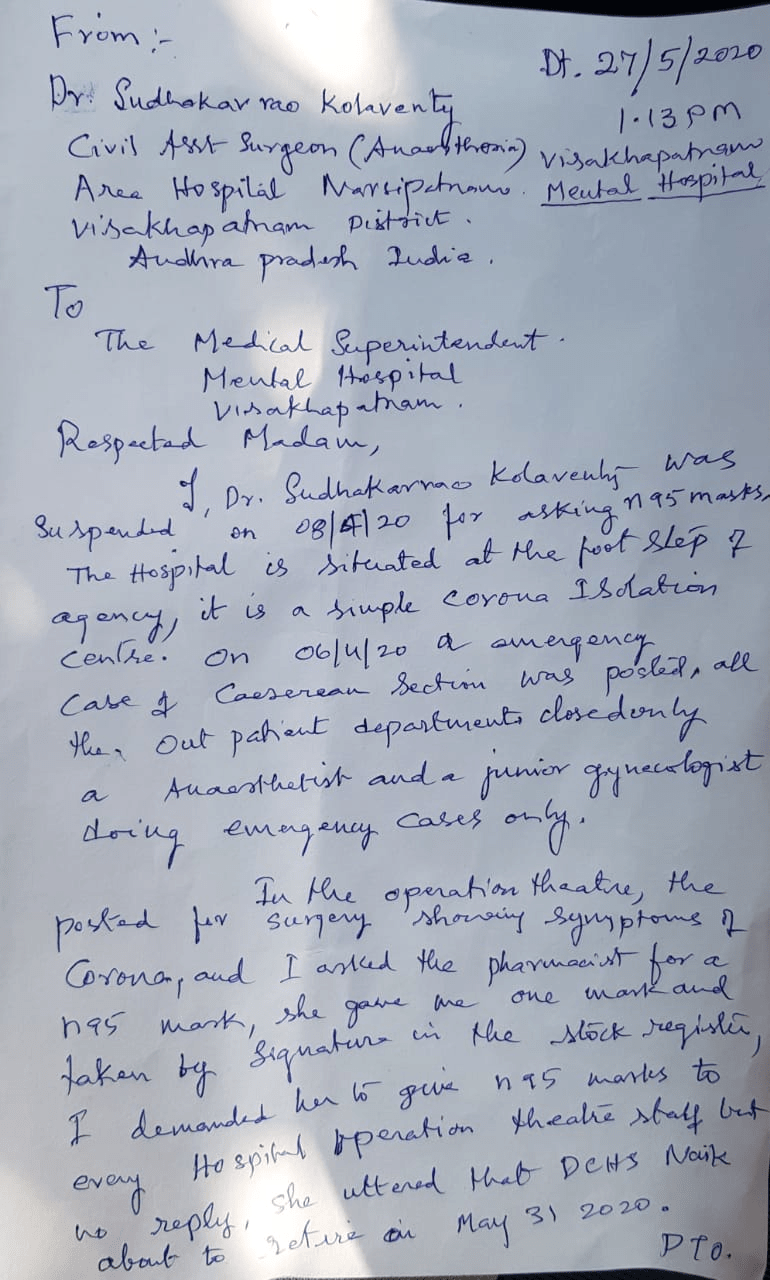 From :-
Dt. 27/5/2020
Dr. Sudhakar rao Kolaventy
1.13 PM
Civil Asst Surgeon (Anaesthesia)
Visakhapatnam
Area Hospital Narsipatnam.
Mental Hospital
Visakhapatnam District.
Andhra pradesh India.
To
The Medical Superintendent.
Mental Hospital
Visakhapatnam.
Respected Madam,
I, Dr. Sudhakarrao Kolaventy was
Suspended on 08/4/20 for asking n95 masks,
The Hospital is situated at the foot step of
agency, it is a simple corona Isolation
centre. On 06/4/20 a emergency
Case of Caeserean Section was posted, all
the, Out patient departments closed only
a Anaesthetist and a junior gynecologist
doing emergency cases only.
In the operation theatre, the
posted for surgery showing symptoms of
Corona, and I asked the pharmacist for a
n95 mask, she gave me one mask and
taken by Signature in the stock register,
I demanded her to give n95 masks to
every Hospital operation theatre staff but
no reply, she uttered that DCHS Naik
about to retire on May 31 2020.
PTO.